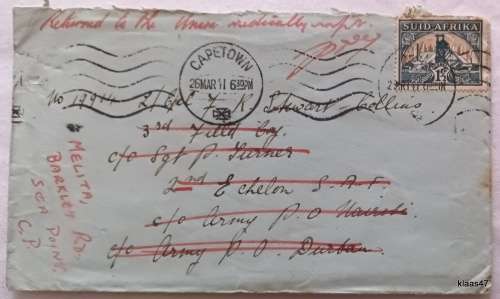 Returned to the Union medically unfit.
SUID AFRIKA
1½D
CAPETOWN
26 MAR 41 6 30 PM
No 17944 L/Cpl F. K. Stewart-Collins
3rd Field Coy.
c/o Sgt P. Turner
2nd Echelon S.A.F.
c/o Army P.O Nairobi
c/o Army P.O. Durban.
MELITA,
BARKLEY RD.
SEA POINT.
C.P.
klaas47